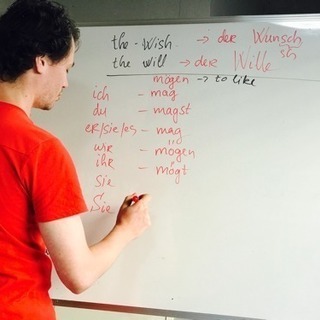 the - Wish → der Wunsch
the will → der Wille
mögen → to like
ich - mag
du - magst
er/sie/es - mag
wir - mögen
ihr - mögt
sie
Sie